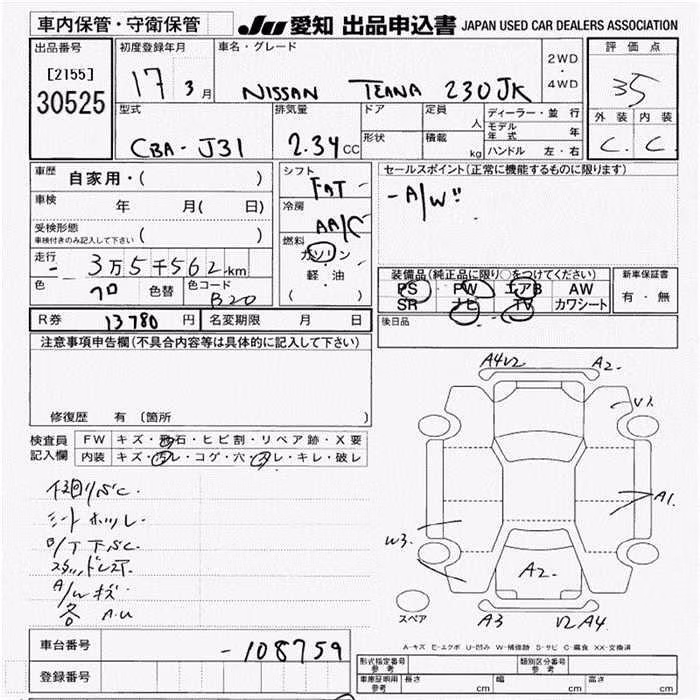 車内保管・守衛保管
JU 愛知 出品申込書 JAPAN USED CAR DEALERS ASSOCIATION
出品番号
[2155]
30525
初度登録年月
17 3月
車名・グレード
NISSAN TEANA 230JK
2WD
・
4WD
評価点
3.5
外装 内装
C. C.
型式
CBA-J31
排気量
2.34CC
ドア
形状
定員 人
積載 kg
ディーラー・並行
モデル年式 年
ハンドル 左・右
車歴 自家用・( )
車検 年 月( 日)
受検形態 ( )
車検付きのみ記入して下さい
走行 3万5千562km
色 クロ 色替 色コード B20
シフト
FAT
冷房
AA/C
燃料
ガソリン
軽・油
( )
セールスポイント(正常に機能するものに限ります)
-A/W"
装備品(純正品に限り○をつけてください)
PS PW エアB AW
SR ナビ TV カワシート
新車保証書
有・無
後日品
R券 13780円 名変期限 月 日
注意事項申告欄(不具合内容等は具体的に記入して下さい)
修復歴 有 〔箇所 〕
検査員
記入欄
FW キズ・飛石・ヒビ割・リペア跡・X要
内装 キズ・汚レ・コゲ・穴・スレ・キレ・破レ
シートホツレ
A/Wキズ
各 A.U
A4V2 A2
V1.
A1.
W3.
A2.
A3 V2 A4
スペア
A-キズ E-エクボ U-凹み W-補修跡 S-サビ C-腐食 XX-交換済
車台番号 -108759
登録番号
形式指定番号 参考
類別区分番号 参考
車庫証明用 参考 長さ cm 幅 cm 高さ cm